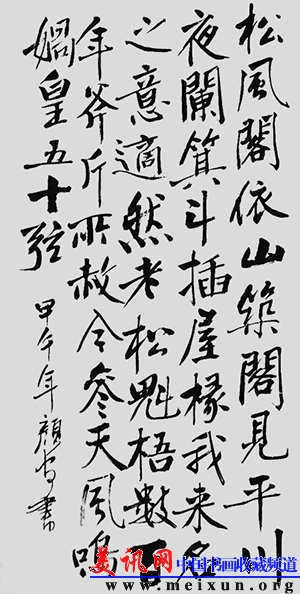 松風閣依山築閣見平川
夜闌箕斗插屋椽我來名
之意適然老松魁梧數百
年斧斤所赦今參天風鳴
媧皇五十弦
甲午年顏書
美讯网 中国书画收藏频道
www.meixun.org